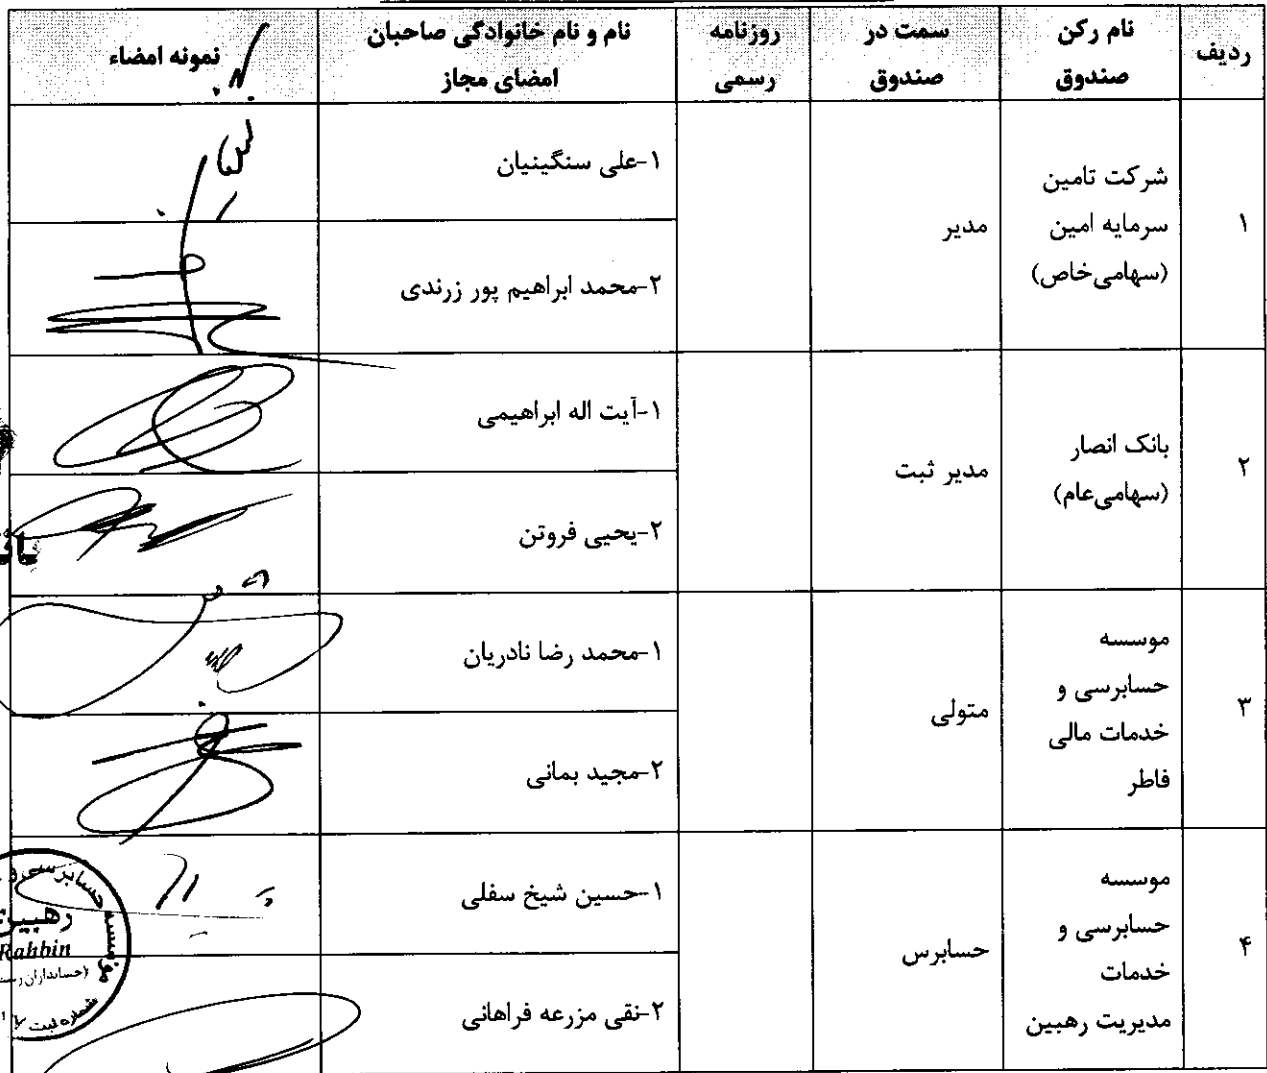 ردیف
نام رکن
صندوق
سمت در
صندوق
روزنامه
رسمی
نام و نام خانوادگی صاحبان
امضای مجاز
نمونه امضاء
۱
شرکت تامین
سرمایه امین
(سهامی‌خاص)
مدیر
۱-علی سنگینیان
۲-محمد ابراهیم پور زرندی
۲
بانک انصار
(سهامی‌عام)
مدیر ثبت
۱-آیت اله ابراهیمی
۲-یحیی فروتن
۳
موسسه
حسابرسی و
خدمات مالی
فاطر
متولی
۱-محمد رضا نادریان
۲-مجید بمانی
۴
موسسه
حسابرسی و
خدمات
مدیریت رهبین
حسابرس
۱-حسین شیخ سفلی
۲-نقی مزرعه فراهانی
موسسه حسابرسی و
رهبین
Rahbin
شماره ثبت